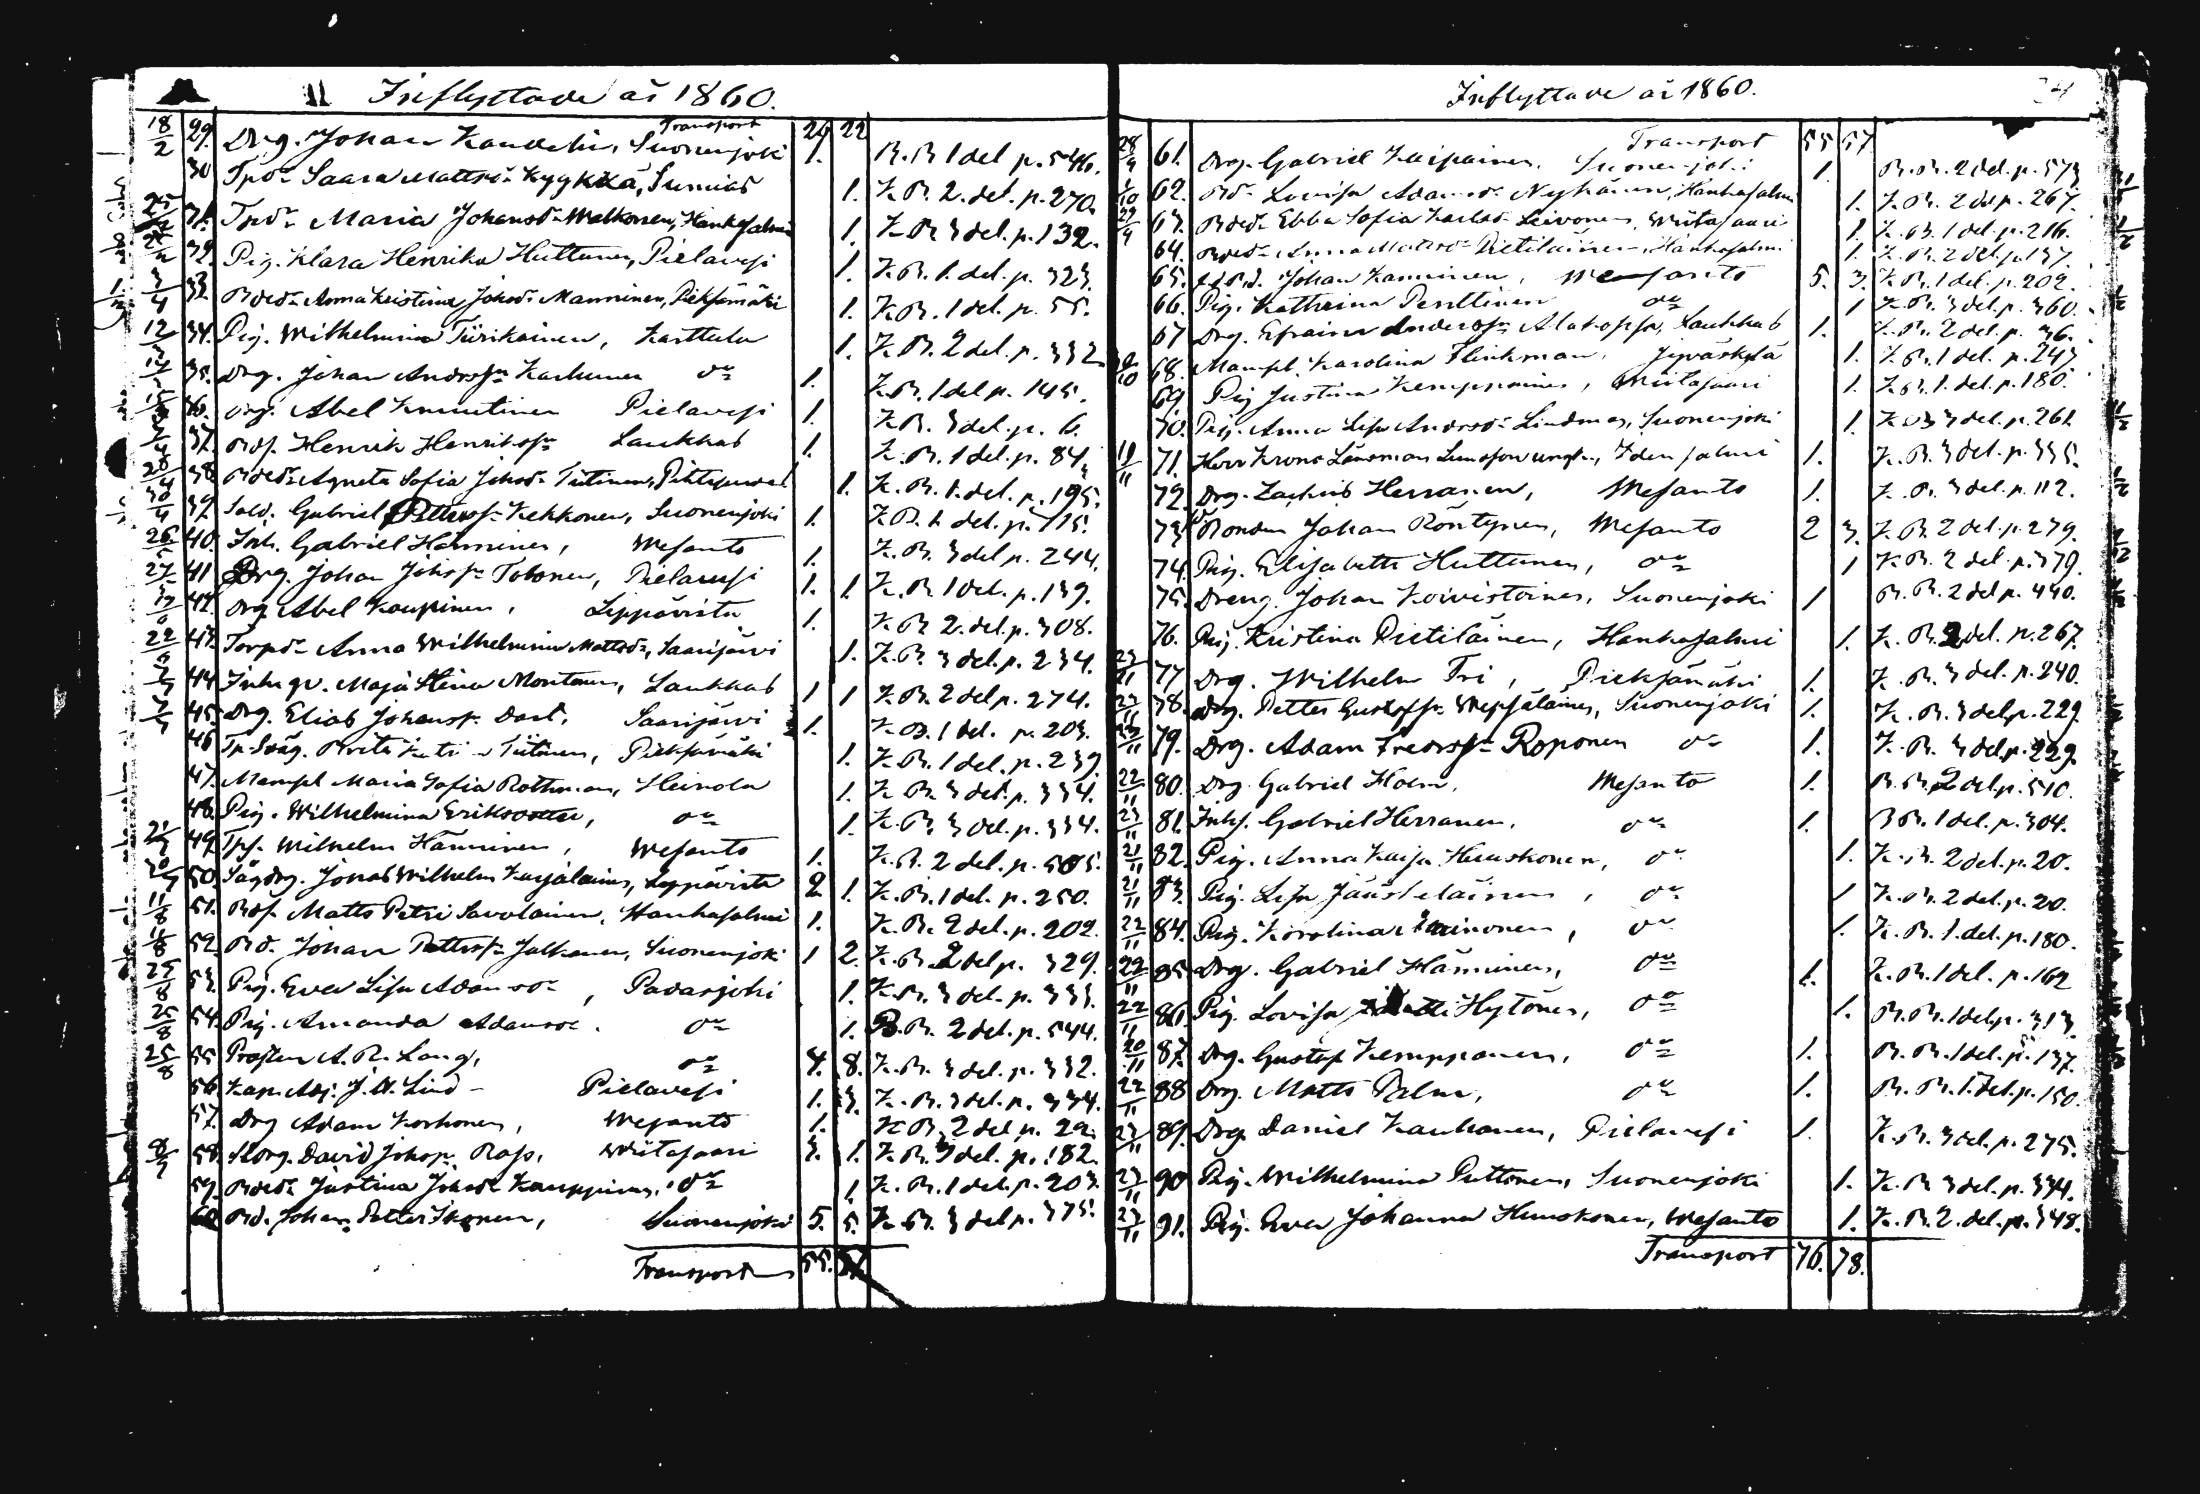 Inflyttade år 1860.
Transport 29 22
18/2 29. Drg. Johan Kandelin, Suonenjoki 1. B.B 1 del p. 546.
30 Tpd:r Saara Mattsd:r Kygkkä, Sumias 1. K.B. 2. del. p. 270.
31. Tpd:r Maria Johansd:r Walkonen, Hankasalmi 1. K.B 3 del. p. 132.
32. Pig. Klara Henrika Huttunen, Pielavesi 1. K.B. 1. del. p. 323.
3/4 33. Bded:r Anna Kristina Johsd:r Manninen, Pieksämäki 1. K.B. 1 del. p. 55.
34. Pig. Wilhelmina Tiirikainen, Karttula 1. K.B. 2 del. p. 332
35. Drg. Johan Andrss:n Karhunen d:o 1. K.B. 1 del p. 145.
36. Drg. Abel Knuutinen Pielavesi 1. K.B. 3 del. p. 6.
37. Bds. Henrik Henrikss:n Laukkas 1. K.B. 1 del. p. 84.
38 Bded:r Agneta Sofia Johsd:r Tiitinen, Pihtipudas 1. K.B. 1. del. p. 195.
39. Sold. Gabriel Petterss:n Kekkonen, Suonenjoki 1. K.B. 1 del. p. 115.
40. Inh. Gabriel Hänninen, Wesanto 1. K.B. 3 del p. 244.
41 Drg. Johan Johss:n Tolonen, Pielavesi 1. 1. K.B. 1 del. p. 139.
42. Drg Abel Kauppinen, Leppävirta 1. K.B 2. del. p. 308.
43. Torpd:r Anna Wilhelmina Mattsd:r, Saarijärvi 1. K.B. 3 del. p. 234.
44 Inh. qv. Maja Stina Montonen, Laukkas 1 1 K.B. 2 del p. 274.
45. Drg. Elias Johanss:n Dast, Saarijärvi 1. K.B. 1 del. p. 203.
46 Tiitinen, Pieksämäki 1. K.B. 1 del. p. 239
47. Mamsel Maria Sofia Rothman, Heinola 1. K.B. 3 del. p. 334.
48. Pig. Wilhelmina Eriksdotter, d:o 1. K.B. 3 del. p. 334.
49. Tps. Wilhelm Hänninen, Wesanto 1. K.B. 2 del. p. 505.
50. Sågdrg. Jonas Wilhelm Karjalainen, Leppävirta 2. 1. K.B. 1 del. p. 250.
11/8 51. Bds. Matts Petri Savolainen, Hankasalmi 1. K.B. 2 del. p. 202.
52. Bd. Johan Petterss:n Jalkanen, Suonenjoki 1 2. K.B. 2 del p. 329.
25/8 53. Pig. Eva Lisa Adamsd:r, Padasjoki 1. K.B. 3 del. p. 333.
25/8 54. Pig. Amanda Adamsd:r. d:o 1. B.B. 2 del. p. 544.
25/8 55 Prosten A. R. Lang, d:o 4. 8. K.B. 3 del. p. 332.
56. Kap. Adj. J. W. Lind Pielavesi 1. 3. K.B. 3 del. p. 334.
57. Drg Adam Korhonen, Wesanto 1. K.B. 2 del p. 22.
58. Skorg. David Johss:n Rass, Wiitasaari 3. 1. K.B. 3 del. p. 182.
59. Bded:r Justina Johsd:r Kauppinen, d:o 1. K.B. 1 del. p. 203.
60 Bd. Johan Petter Ikonen, Suonenjoki 5. 5. K.B. 3 del p. 375.
Transport 55. 57
Inflyttade år 1860.
Transport 55 57
28/9 61. Drg. Gabriel Kaipainen, Suonenjoki 1. B.B. 2 del. p. 573
62. Bd:r Lovisa Adamsd:r Nyhänen, Hankasalmi 1. K.B. 2 del p. 267.
29/9 63. Bded:r Ebba Sofia Karlsd:r Leivonen, Wiitasaari 1. K.B. 1 del. p. 216.
64. Bded:r Anna Mattsd:r Pietiläinen, Hankasalmi 1. K.B. 2 del. p. 137.
65. Johan Kanninen, Wesanto 5. 3. K.B. 1 del. p. 202.
66. Pig. Katharina Penttinen d:o 1 K.B. 3 del. p. 360.
67 Drg. Efraim Anderss:n Alatossa, Laukkas 1. K.B. 2 del. p. 36.
68. Mamsl. Karolina Flinkman, Jyväskylä 1. K.B. 1 del. p. 247
69 Pig Justina Kemppainen, Wiitasaari 1. K.B. 1. del. p. 180.
70. Pig. Anna Lisa Andrsd:r Lindman, Suonenjoki 1. K.B. 3 del. p. 261.
19/11 71. Herr Krono Länsman, Idensalmi 1. K.B. 3 del. p. 335.
72. Drg. Zachris Herranen, Wesanto 1. K.B. 3 del. p. 112.
73. Bonden Johan Röntynen, Wesanto 2 3. K.B. 2 del. p. 279.
74. Pig. Elisabeth Huttunen, d:o 1 K.B. 2 del. p. 379.
75. Dreng. Johan Koivistoinen, Suonenjoki 1 B.B. 2 del p. 440.
76. Pig. Kristina Pietiläinen, Hankasalmi 1. K.B. 2 del. p. 267.
77 Drg. Wilhelm Tri, Pieksämäki 1. K.B. 3 del. p. 240.
78. Drg. Petter Gustafss:n Wepsäläinen, Suonenjoki 1. K.B. 3 del p. 229.
79. Drg. Adam Fredrss:n Roponen d:o 1. K.B. 3 del p. 229.
22/11 80. Drg. Gabriel Holm, Wesanto 1. B.B. 2 del p. 510.
23/11 81. Inhs. Gabriel Herranen, d:o 1. B.B. 1 del. p. 304.
21/11 82. Pig. Anna Kaisa Huuskonen, d:o 1. K.B. 2 del. p. 20.
21/11 83. Pig. Lisa Jääskeläinen, d:o 1 K.B. 2 del. p. 20.
22/11 84. Pig. Karolina d:o 1. K.B. 1. del. p. 180.
22/11 85. Drg. Gabriel Hänninen, d:o 1. K.B. 1 del. p. 162
22/11 86. Pig. Lovisa Hytönen, d:o 1. B.B. 1 del p. 313.
20/11 87. Drg. Gustaf Kemppanen, d:o 1. B.B. 1 del. p. 137.
22/11 88 Drg. Matts Palm, d:o 1. B.B. 1. del. p. 150.
23/11 89. Drg. Daniel Kauhanen, Pielavesi 1. K.B. 3 del. p. 275.
23/11 90 Pig. Wilhelmina Puttonen, Suonenjoki 1. K.B. 3 del. p. 334.
23/11 91. Pig. Eva Johanna Huuskonen, Wesanto 1. K.B. 2. del. p. 348.
Transport 76. 78.